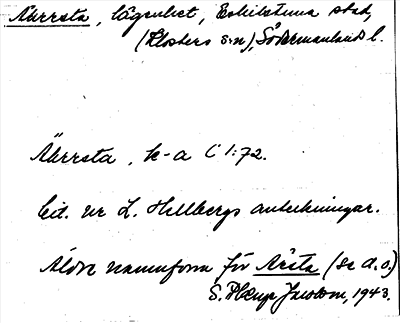 Äkersta, lägenhet, Eskilstuna stad,
(Klosters s:n), Södermanlands l.
Äkersta, k-a C 1:72.
Cit. ur L. Hellbergs anteckningar.
Äldre namnform för Årsta (se d.o.)
S. Jacobsson, 1943.